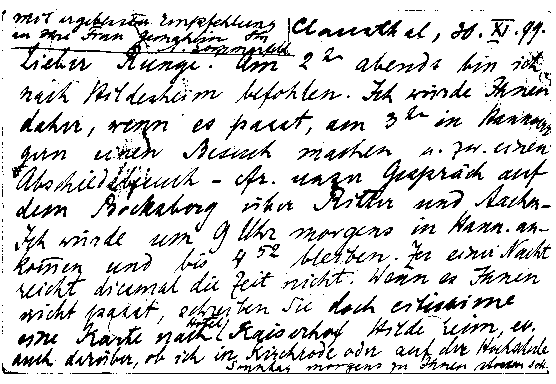 mit ergebensten Empfehlung
an Ihre Frau Gemahlin Ihr
Sommerfeld
Clausthal, 30. XI. 99.
Lieber Runge. Am 2ten abends bin ich
nach Hildesheim befohlen. Ich würde Ihnen
daher, wenn es passt, am 3ten in Hannover
gern einen Besuch machen u. zw. einen
Abschiedsbesuch – cfr. unser Gespräch auf
dem Bocksberg über Ritter und Aachen.
Ich würde um 9 Uhr morgens in Hann. an-
kommen und bis 4 52 bleiben. Zu einer Nacht
reicht diesmal die Zeit nicht. Wenn es Ihnen
nicht passt, schreiben Sie doch citissime
eine Karte nach Hotel Kaiserhof Hildesheim, ev.
auch darüber, ob ich in Kirchrode oder auf der Hochschule
Sonntag morgens zu Ihnen soll